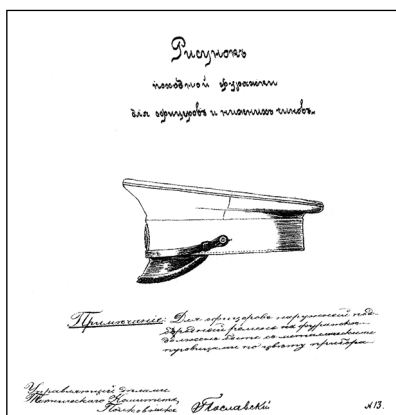 Рисунокъ
походной фуражки
для офицеровъ и нижнихъ чиновъ.
Примѣчаніе: Для офицеровъ наружный под-
ремень на фуражкѣ
пуговицами по цвѣту прибора
Управляющій дѣлами
Техническаго Комитета,
Полковникъ Пославскій
№ 13.